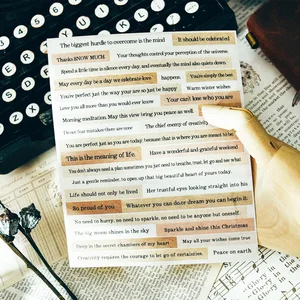 The biggest hurdle to overcome is the mind
It should be celebrated
Thanks SO MUCH
Your thoughts control your perception of the universe.
Spend a little time in silence every day, and eventually the mind also quiets down.
May every day be a day we celebrate love.
happen
You're simply the best
You're perfect just the way your are so just be happy
Warm winter wishes
Love you all more than you would ever know
Your can't lose who you are
Morning meditation. May this view bring you peace as well.
The chief enemy of creativity
You are perfect just as you are today, because that is where you are meant to be
This is the meaning of life.
Have a wonderful and grateful weekend
You don't always need a plan sometimes you just need to breathe, trust, let go and see what
Just a gentle reminder, to open up that big beautiful heart of yours today.
Life should not only be lived
Her trustful eyes looking straight into his
So proud of you
Whatever you can do or dream you can begin it:
No need to hurry, no need to sparkle, no need to be anyone but oneself.
The big moon shines in the sky
Sparkle and shine this Christmas
Deep in the secret chambers of my heart
May all your wishes come true
Creativity requires the courage to let go of certainties.
Peace on earth